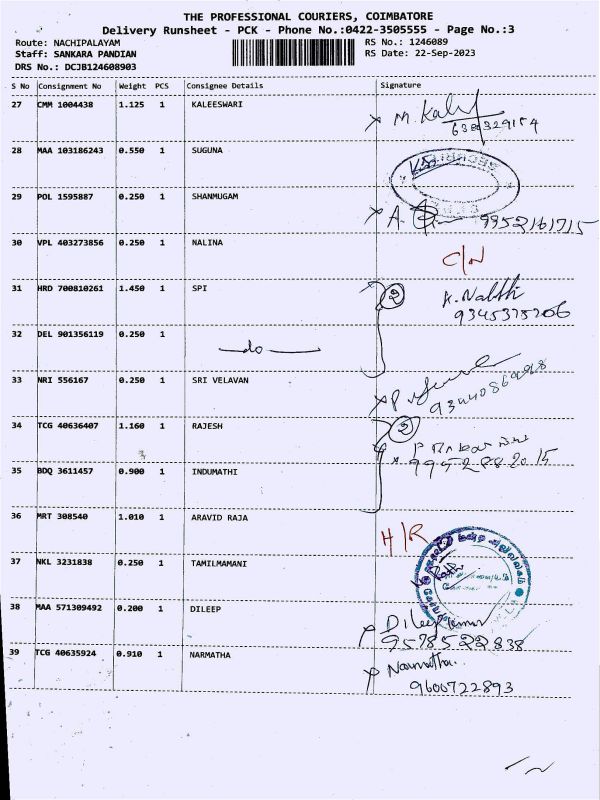 THE PROFESSIONAL COURIERS, COIMBATORE
Delivery Runsheet - PCK - Phone No.:0422-3505555 - Page No.:3
Route: NACHIPALAYAM RS No.: 1246089
Staff: SANKARA PANDIAN RS Date: 22-Sep-2023
DRS No.: DCJB124608903
S No Consignment No Weight PCS Consignee Details Signature
27 CMM 1004438 1.125 1 KALEESWARI
28 MAA 103186243 0.550 1 SUGUNA
29 POL 1595887 0.250 1 SHANMUGAM
9952161715
30 VPL 403273856 0.250 1 NALINA
C/N
31 HRD 700810261 1.450 1 SPI 2
9345375206
32 DEL 901356119 0.250 1
do
33 NRI 556167 0.250 1 SRI VELAVAN
34 TCG 40636407 1.160 1 RAJESH 2
35 BDQ 3611457 0.900 1 INDUMATHI
36 MRT 308540 1.010 1 ARAVID RAJA
H/R
37 NKL 3231838 0.250 1 TAMILMAMANI
38 MAA 571309492 0.200 1 DILEEP
Dileepkumar
9578522838
39 TCG 40635924 0.910 1 NARMATHA
Narmatha..
9600722893